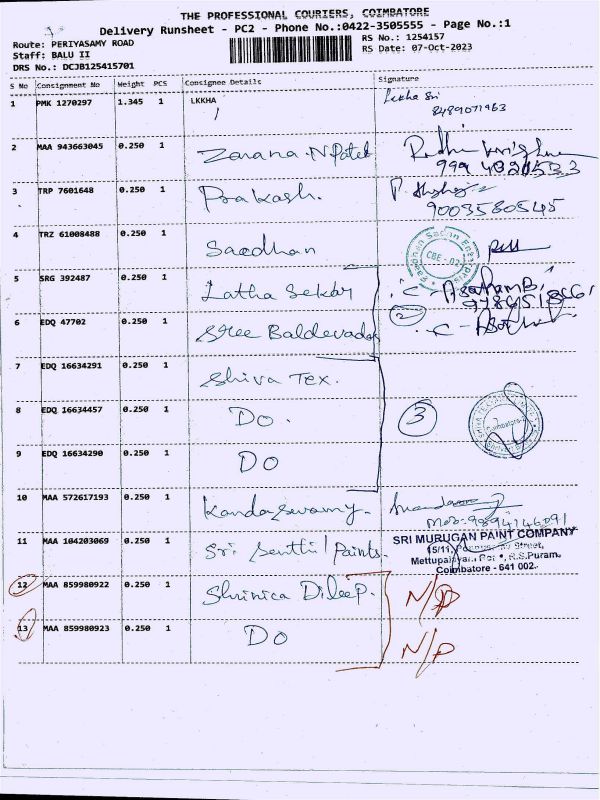 THE PROFESSIONAL COURIERS, COIMBATORE
Delivery Runsheet - PC2 - Phone No.:0422-3505555 - Page No.:1
Route: PERIYASAMY ROAD
RS No.: 1254157
Staff: BALU II
RS Date: 07-Oct-2023
DRS No.: DCJB125415701
S No Consignment No Weight PCS Consignee Details Signature
1 PMK 1270297 1.345 1 LKKHA Lekha Sri
8489071963
2 MAA 943663045 0.250 1 Zarana.N.Patel
3 TRP 7601648 0.250 1 Prakash.
9003580545
4 TRZ 61008488 0.250 1 Saedhan
CBE - 02
5 SRG 392487 0.250 1 Latha Sekar
6 EDQ 47702 0.250 1 Sree Baldevadas
2
7 EDQ 16634291 0.250 1 Shiva Tex.
8 EDQ 16634457 0.250 1 Do. 3
Coimbatore
9 EDQ 16634290 0.250 1 Do
10 MAA 572617193 0.250 1 Kandaswamy.
11 MAA 104203069 0.250 1 Sri Senthil Paints.
SRI MURUGAN PAINT COMPANY
15/11, Street,
R.S.Puram,
Coimbatore - 641 002.
12 MAA 859980922 0.250 1 Shrinica Dileep. N/P
13 MAA 859980923 0.250 1 Do N/P